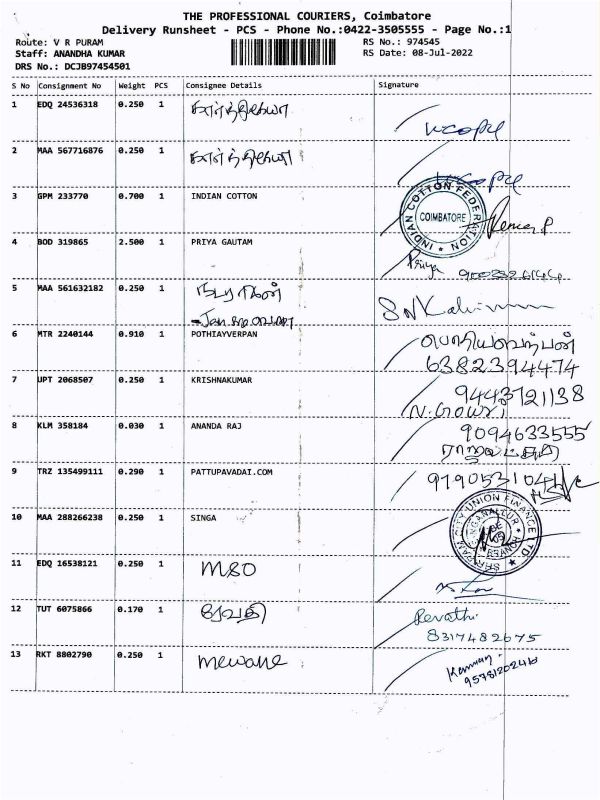 THE PROFESSIONAL COURIERS, Coimbatore
Delivery Runsheet - PCS - Phone No.:0422-3505555 - Page No.:1
Route: V R PURAM
RS No.: 974545
Staff: ANANDHA KUMAR
RS Date: 08-Jul-2022
DRS No.: DCJB97454501
S No Consignment No Weight PCS Consignee Details Signature
1 EDQ 24536318 0.250 1 கார்த்திகேயா
2 MAA 567716876 0.250 1 கார்த்திகேயா
3 GPM 233770 0.700 1 INDIAN COTTON
INDIAN COTTON FEDERATION
COIMBATORE
4 BOD 319865 2.500 1 PRIYA GAUTAM
Priya
5 MAA 561632182 0.250 1
6 MTR 2240144 0.910 1 POTHIAYVERPAN
6382394474
7 UPT 2068507 0.250 1 KRISHNAKUMAR 9443721138
N. Gowri
8 KLM 358184 0.030 1 ANANDA RAJ 9094633555
9 TRZ 135499111 0.290 1 PATTUPAVADAI.COM
10 MAA 288266238 0.250 1 SINGA
CITY UNION FINANCE LTD
BRANCH
11 EDQ 16538121 0.250 1 M80
12 TUT 6075866 0.170 1 ரேவதி Revathi
8317482675
13 RKT 8802790 0.250 1 mewane
9578120246